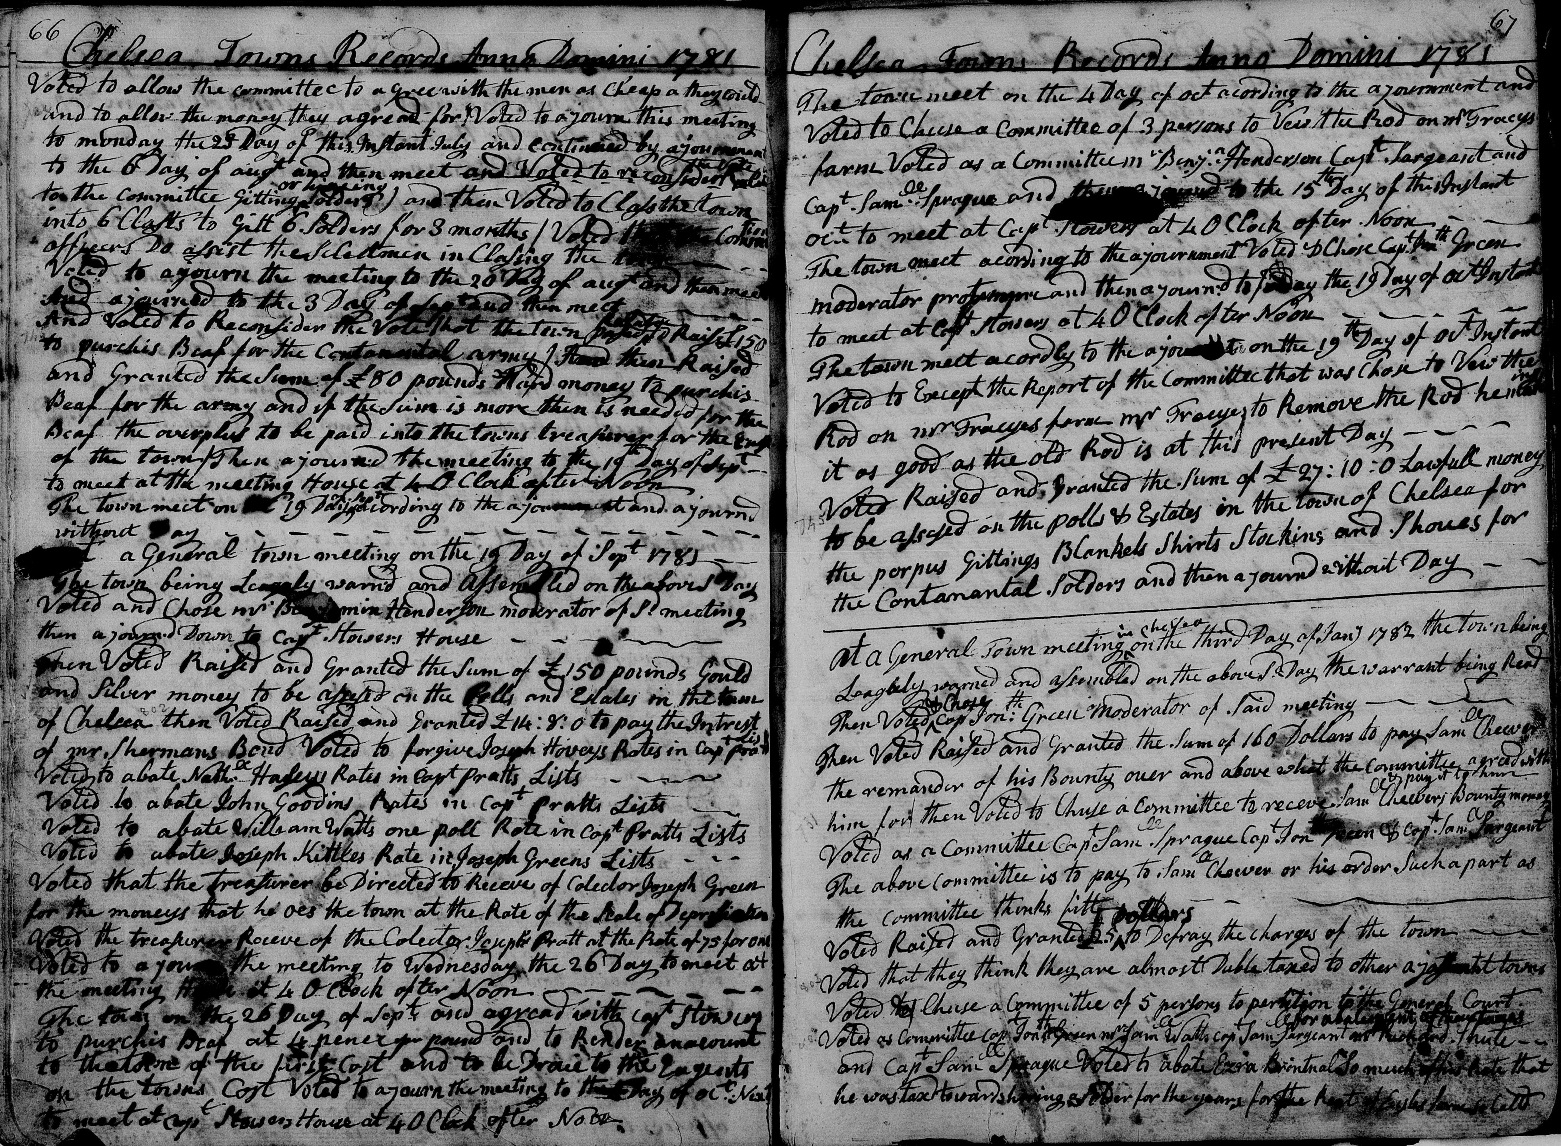 66
Chelsea Towns Records Anno Domini 1781
Voted to allow the committee to agree with the men as Cheap a they could
and to allow the money they agread for / Voted to ajourn this meeting
to monday the 23 Day of this Instant July and continued by ajournment
to the 6 Day of augt and then meet and Voted to reconsider the Vote
to the committee Gitting or hireing Solders) and then Voted to Class the town
into 6 Classs to Gitt 6 Solders for 3 months / Voted the Comm
officers Do assist the Selettmen in Classing the town
Voted to ajourn the meeting to the 20 Day of augt and then meet
And ajourned to the 3 Day of Sept and then meet
And Voted to Reconsider the Vote that the town Raised £150
to purchis Beaf for the Contanental army / then Raised
and Granted the Sum of £80 pounds Hard money to purchis
Beaf for the army and if the Sum is more then is needed for the
Beaf the overplus to be paid into the towns treasurer for the
of the town / Then ajourned the meeting to the 19th Day of Sept
to meet at the meeting House at 4 O Clock after Noon
The town meet on 19 Day of Sept acording to the ajournment and ajournd
without Day
a General town meeting on the 19 Day of Sept 1781
The town being Leagaly warnd and Assembled on the above sd Day
Voted and Chose mr Benjamin Henderson moderator of Sd meeting
then ajournd Down to Capt Stowers House
Then Voted Raised and Granted the Sum of £150 pounds Gould
and Silver money to be asesed on the Polls and Estates in the town
of Chelsea then Voted Raised and Granted £14:8:0 to pay the Intrest
of mr Shermans Bond Voted to forgive Joseph Hoveys Rates in Capt Pratts Lists
Voted to abate Nathll Haseys Rates in Capt Pratts Lists
Voted to abate John Goodins Rates in Capt Pratts Lists
Voted to abate William Watts one poll Rate in Capt Pratts Lists
Voted to abate Joseph Kittles Rate in Joseph Greens Lists
Voted that the treasurer be Directed to Receve of Colector Joseph Green
for the moneys that he oes the town at the Rate of the Scale of Depreciation
Voted the treasurer Receve of the Colector Joseph Pratt at the Rate of 75 for one
Voted to ajourn the meeting to Wednesday the 26 Day to meet at
the meeting House at 4 O Clock after Noon
The town on the 26 Day of Sept and agread with Capt Stowers
to purchis Beaf at 4 pence pr pound and to Render an acount
to the town of the first Cost and to be Drove to the Eagents
on the towns Cost Voted to ajourn the meeting to the Day of oct Next
to meet at Capt Stowers House at 4 O Clock after Noon
67
Chelsea Towns Records Anno Domini 1781
The town meet on the 4 Day of oct acording to the ajournment and
Voted to Chuse a Committee of 3 persons to Vew the Rod on mr Traceys
farm Voted as a Committee mr Benjn Henderson Capt Sargeant and
Capt Samll Sprague and then ajournd to the 15th Day of this Instant
oct to meet at Capt Stowers at 4 O Clock after Noon
The town meet acording to the ajournment Voted & Chose Capt Jonth Green
moderator protempre and then ajournd to friday the 19 Day of oct Instant
to meet at Capt Stowers at 4 O Clock after Noon
The town meet acordly to the ajournment on the 19th Day of oct Instant
Voted to Except the Report of the Committee that was Chose to Vew the
Rod on mr Traceys farm mr Traceys to Remove the Rod he
it as good as the old Rod is at this present Day
Voted Raised and Granted the Sum of £27:10:0 Lawfull money
to be assesed on the polls & Estates in the town of Chelsea for
the porpus Gittings Blankets Shirts Stockins and Shoues for
the Contanantal Solders and then ajournd without Day
At a General Town meeting in Chelsea on the third Day of Jany 1782 the town being
Leagbly warned and assembled on the above Sd Day the warrant being Read
Then Voted & Chose Capt Jonth Green Moderator of Said meeting
Then Voted Raised and Granted the Sum of 160 Dollars to pay Samll Chever
the remander of his Bounty over and above what the Committee agreed with
him for / then Voted to Chuse a Committee to receve Samll Cheevers Bounty money & pay it to him
Voted as a Committee Capt Samll Sprague Capt Jonth Green & Capt Samll Sargeant
The above Committee is to pay to Samll Chever or his order Such a part as
the committee thinks fitt
Voted Raised and Granted 25 Dollars to Defray the charges of the town
Voted that they think they are almost Duble taxed to other ajasent towns
Voted to Chuse a Committee of 5 persons to petition to the General Court for abatement of
Voted as Committee Capt Jonth Green mr Saml Watts Capt Saml Sargeant mr Richard Shute
and Capt Samll Sprague Voted to abate Ezra Brintnal So much of his Rate that
he was taxt towards hiring a Solder for the years for the